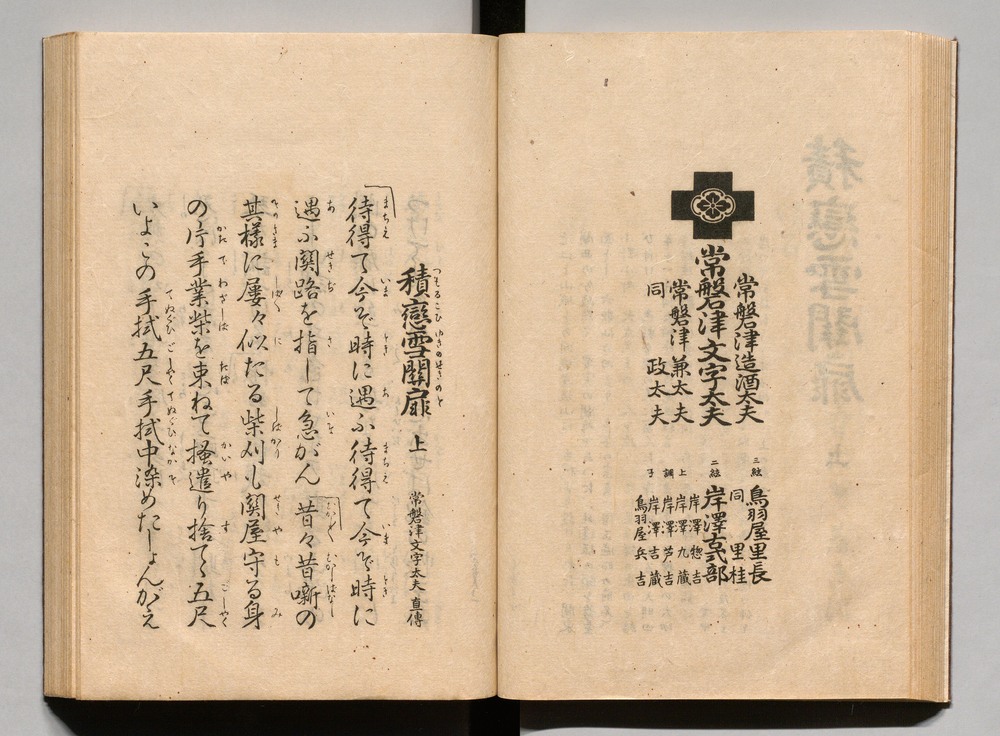 常磐津造酒太夫
常磐津文字太夫
常磐津 兼太夫
同 政太夫
三絃 鳥羽屋里長
同 里桂
二絃 岸澤古式部
上調子
岸澤惣吉
岸澤九蔵
岸澤芦吉
岸澤吉蔵
鳥羽屋兵吉
積戀雪關扉 上 常磐津文字太夫 直傳
待得て今ぞ時に遇ふ待得て今ぞ時に
遇ふ関路を指して急がん 昔々昔噺の
其様に屡々似たる柴刈も関屋守る身
の片手業柴を束ねて掻遣り捨てゝ五尺
いよこの手拭五尺手拭中染めたしよんがえ